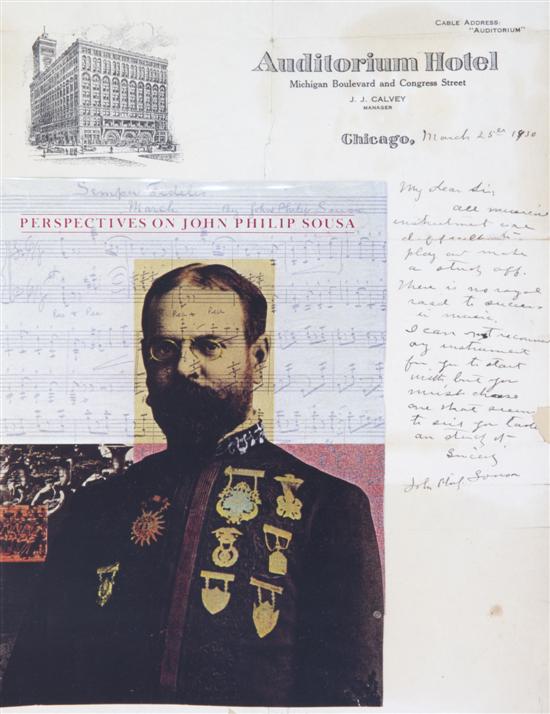 CABLE ADDRESS:
"AUDITORIUM"
Auditorium Hotel
Michigan Boulevard and Congress Street
J. J. CALVEY
MANAGER
Chicago, March 25th 1930
Semper Fidelis
March By John Philip Sousa
PERSPECTIVES ON JOHN PHILIP SOUSA
My dear Sir,
all musical
instrument are
difficult to
play or make
a study of.
There is no royal
road to success
in music.
I can not recommend
any instrument
for you to start
with but you
must choose
one that seems
to suit you
an study it
Sincerely
John Philip Sousa